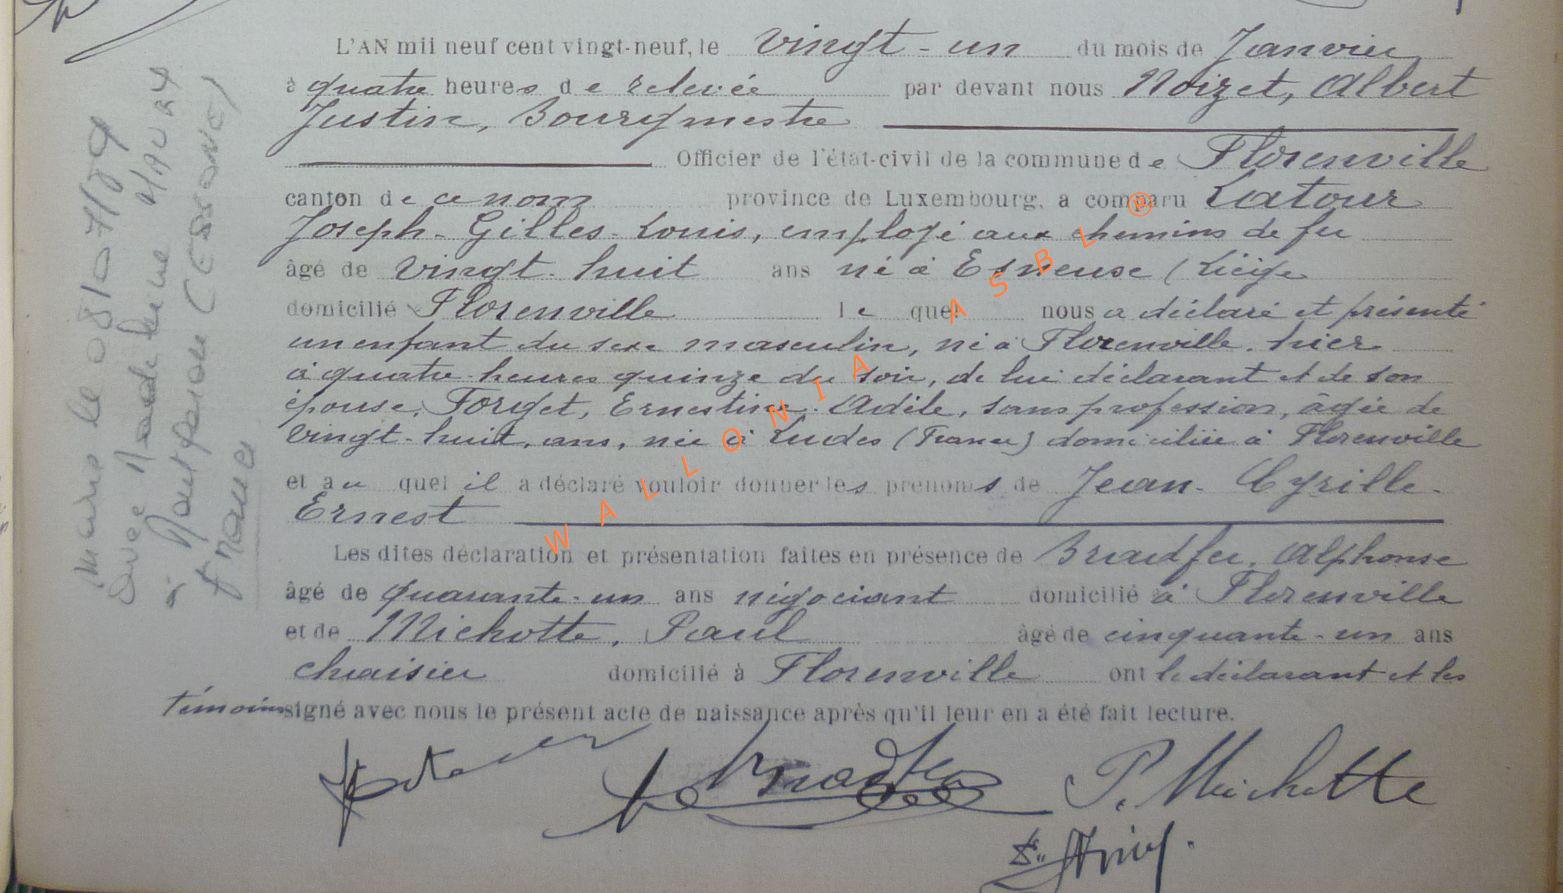 L'AN mil neuf cent vingt-neuf, le vingt-un du mois de Janvier
à quatre heures de relevée par devant nous Noizet, Albert
Justin, Bourgmestre
Officier de l'état-civil de la commune de Florenville
canton de ce nom province de Luxembourg, a comparu Latour
Joseph-Gilles-Louis, employé aux chemins de fer
âgé de vingt-huit ans né à Esneuse (Liège
domicilié Florenville le quel nous a déclaré et présenté
un enfant du sexe masculin, né à Florenville, hier
à quatre heures quinze du soir, de lui déclarant et de son
épouse, Forget, Ernestine-Adèle, sans profession, âgée de
vingt-huit, ans, née à Ludes (France) domiciliée à Florenville
et au quel il a déclaré vouloir donner les prénoms de Jean-Cyrille-
Ernest
Les dites déclaration et présentation faites en présence de Bradfer, Alphonse
âgé de quarante-un ans négociant domicilié à Florenville
et de Michotte, Paul âgé de cinquante-un ans
chaisier domicilié à Florenville ont le déclarant et les
témoins signé avec nous le présent acte de naissance après qu'il leur en a été fait lecture.
P. Michotte
avec Madeleine
à
France
WALLONIA ASBL ®